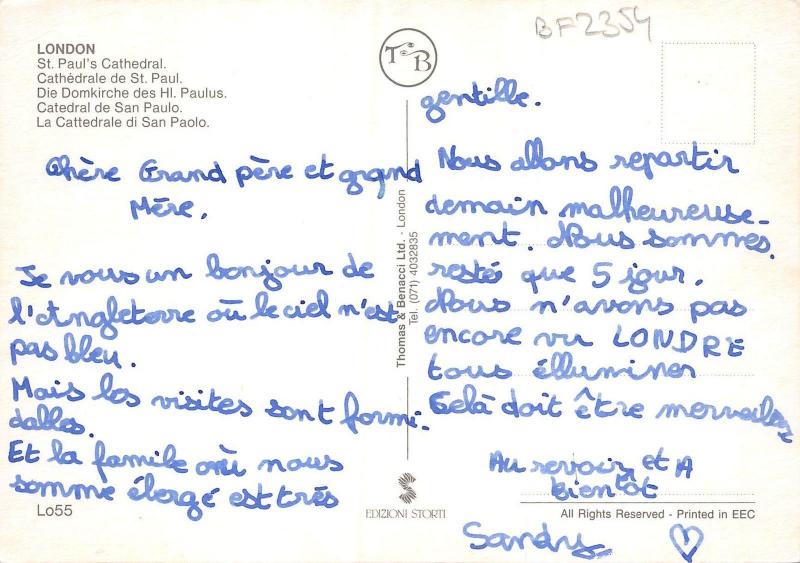 LONDON
St. Paul's Cathedral.
Cathédrale de St. Paul.
Die Domkirche des Hl. Paulus.
Catedral de San Paulo.
La Cattedrale di San Paolo.
Chère Grand père et grand
Mère,
Je vous un bonjour de
l'Angleterre où le ciel n'est
pas bleu.
Mais les visites sont formi-
dables.
Et la famile où nous
somme ébergé est très
Lo55
TB
Thomas & Benacci Ltd. - London
Tel. (071) 4032835
EDIZIONI STORTI
BF2354
gentille.
Nous allons repartir
demain malheureuse-
ment. Nous sommes
resté que 5 jour.
Nous n'avons pas
encore vu LONDRE
tous élluminer
Celà doit être merveilleux
Au revoir et A
bientôt
All Rights Reserved - Printed in EEC
Sandry